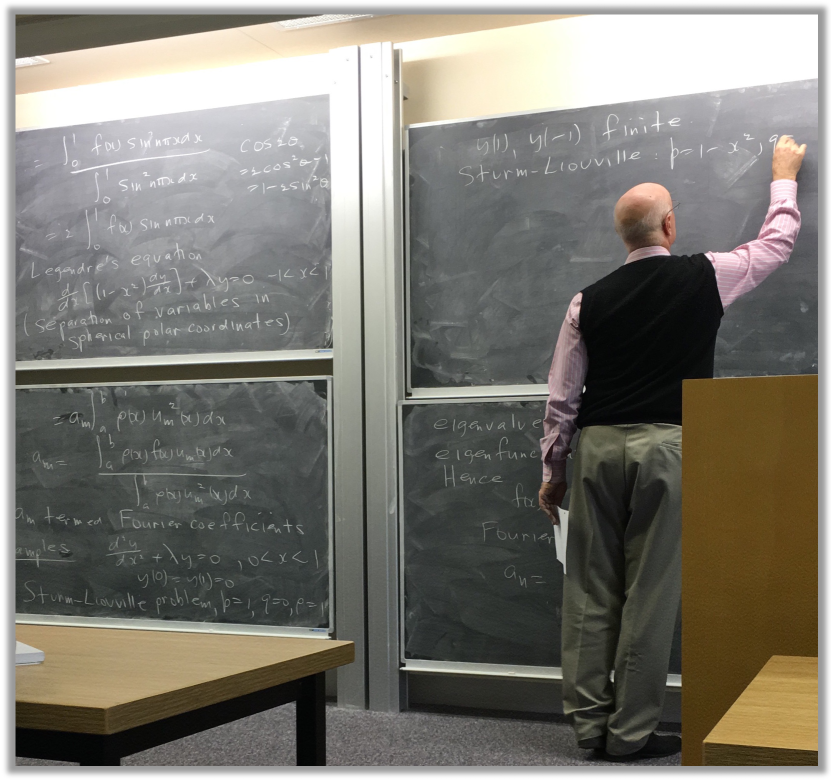 = ∫₀¹ f(x) sin nπx dx
∫₀¹ sin² nπx dx
cos 2θ
= 2cos²θ - 1
= 1 - 2sin²θ
= 2 ∫₀¹ f(x) sin nπx dx
Legendre's equation
d/dx [(1-x²) dy/dx] + λy = 0 -1 < x < 1
(separation of variables in
spherical polar coordinates)
= aₘ ∫ₐᵇ ρ(x) uₘ²(x) dx
aₘ = ∫ₐᵇ ρ(x) f(x) uₘ(x) dx
∫ₐᵇ ρ(x) uₘ²(x) dx
aₘ termed Fourier coefficients
amples d²y/dx² + λy = 0, 0 < x < 1
y(0) = y(1) = 0
Sturm-Liouville problem, p=1, q=0, ρ=1
y(1), y(-1) finite
Sturm-Liouville : p = 1 - x², q
eigenvalue
eigenfunc
Hence
f(x)
Fourier
aₙ =